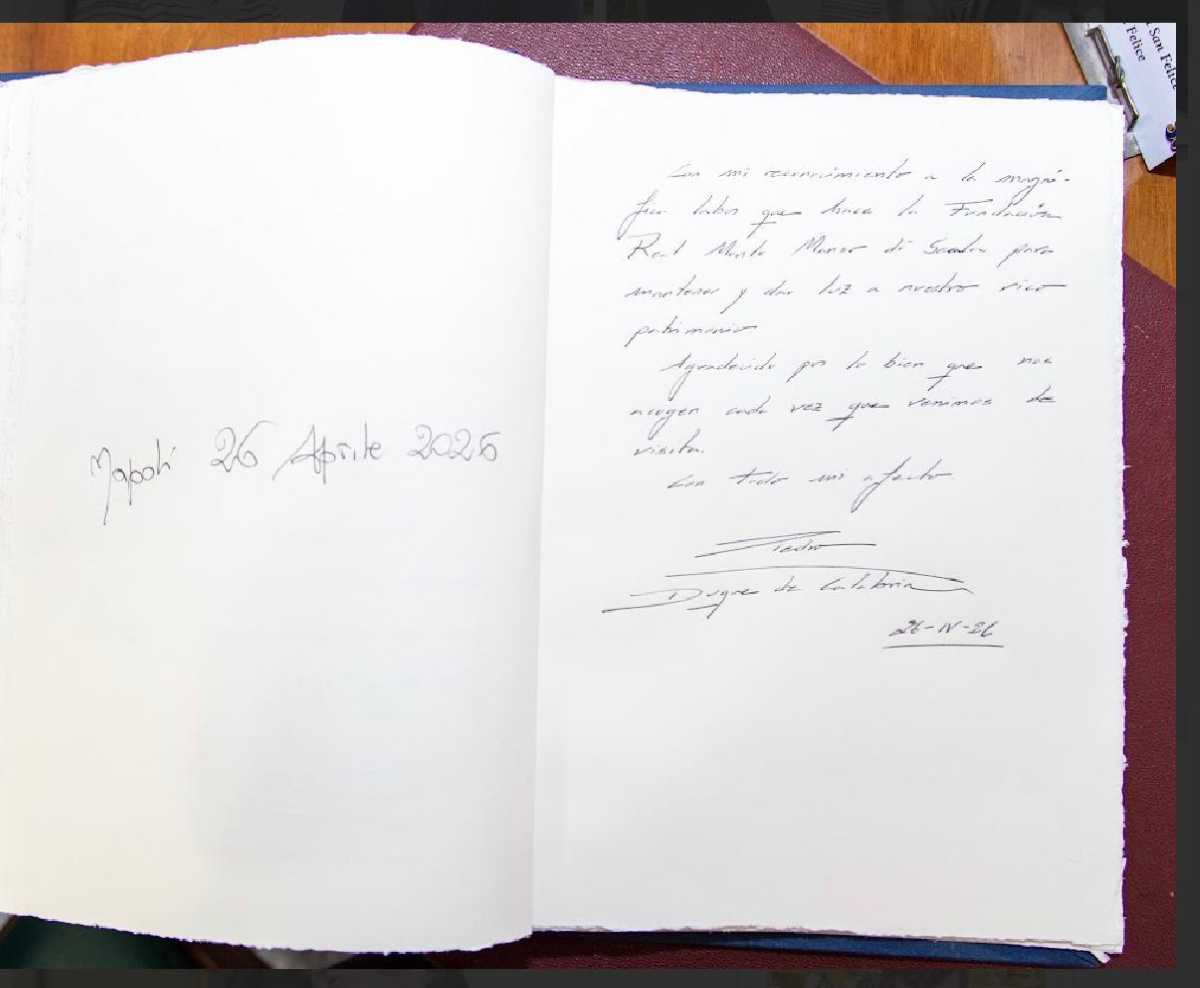 Napoli 26 Aprile 2026
Con mi reconocimiento a la magní-
fica labor que hace la Fundación
Real Monte Manso di Scala para
mantener y dar luz a nuestro rico
patrimonio
Agradecido por lo bien que nos
acogen cada vez que venimos de
visita.
Con todo mi afecto.
Pedro
Duque de Calabria
26-IV-26
San Felice
Felice